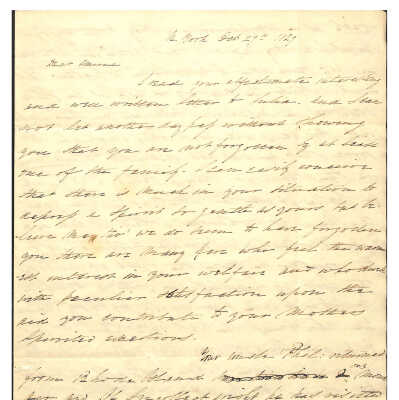 N York Oct 29th 1829
Dear
I read your affectionate interesting
and well written letter to Julia. And can
not let another day pass without showing
you that you are not forgotten by at least
one of the family. I can easily conceive
that there is much in your situation to
depress a Spirit so gentle as yours but be
lieve me tho' we do seem to have forgotten
you there are many here who feel the warm
est interest in your welfare and who dwell
with peculiar satisfaction upon the
aid you contribute to your Mothers
spirited exertions.
Your uncle Phil: returned
from Rhode Island